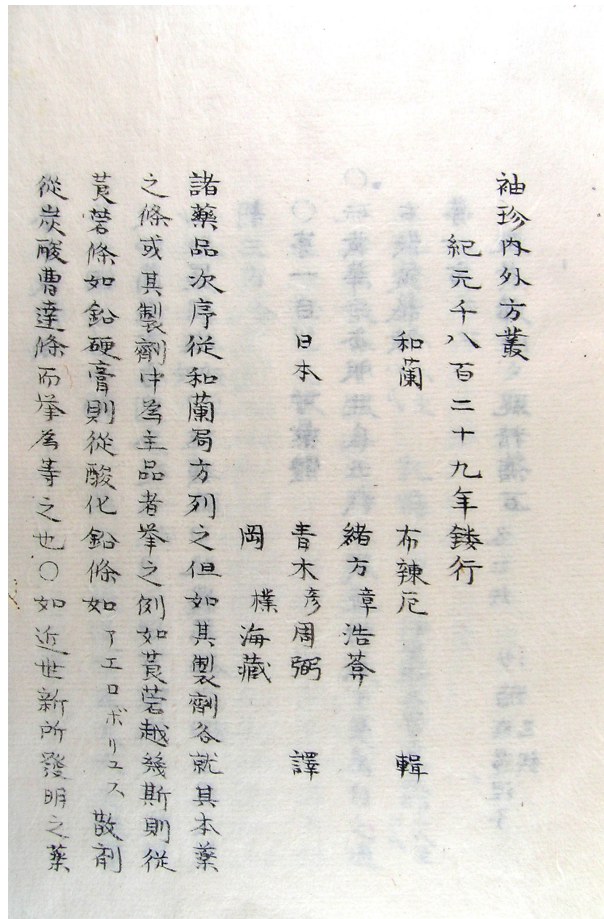 袖珍内外方叢
紀元千八百二十九年鏤行
和蘭 布辣厄 輯
緒方章浩莽
日本 青木彦周弼 譯
岡 樸海藏
諸藥品次序從和蘭局方列之但如其製劑各就其本藥
之條或其製劑中為主品者挙之例如莨菪越幾斯則從
莨菪條如鉛硬膏則從酸化鉛條如アエロボリユス散剤
從炭酸曹達條而挙為等之也〇如近世新所發明之薬